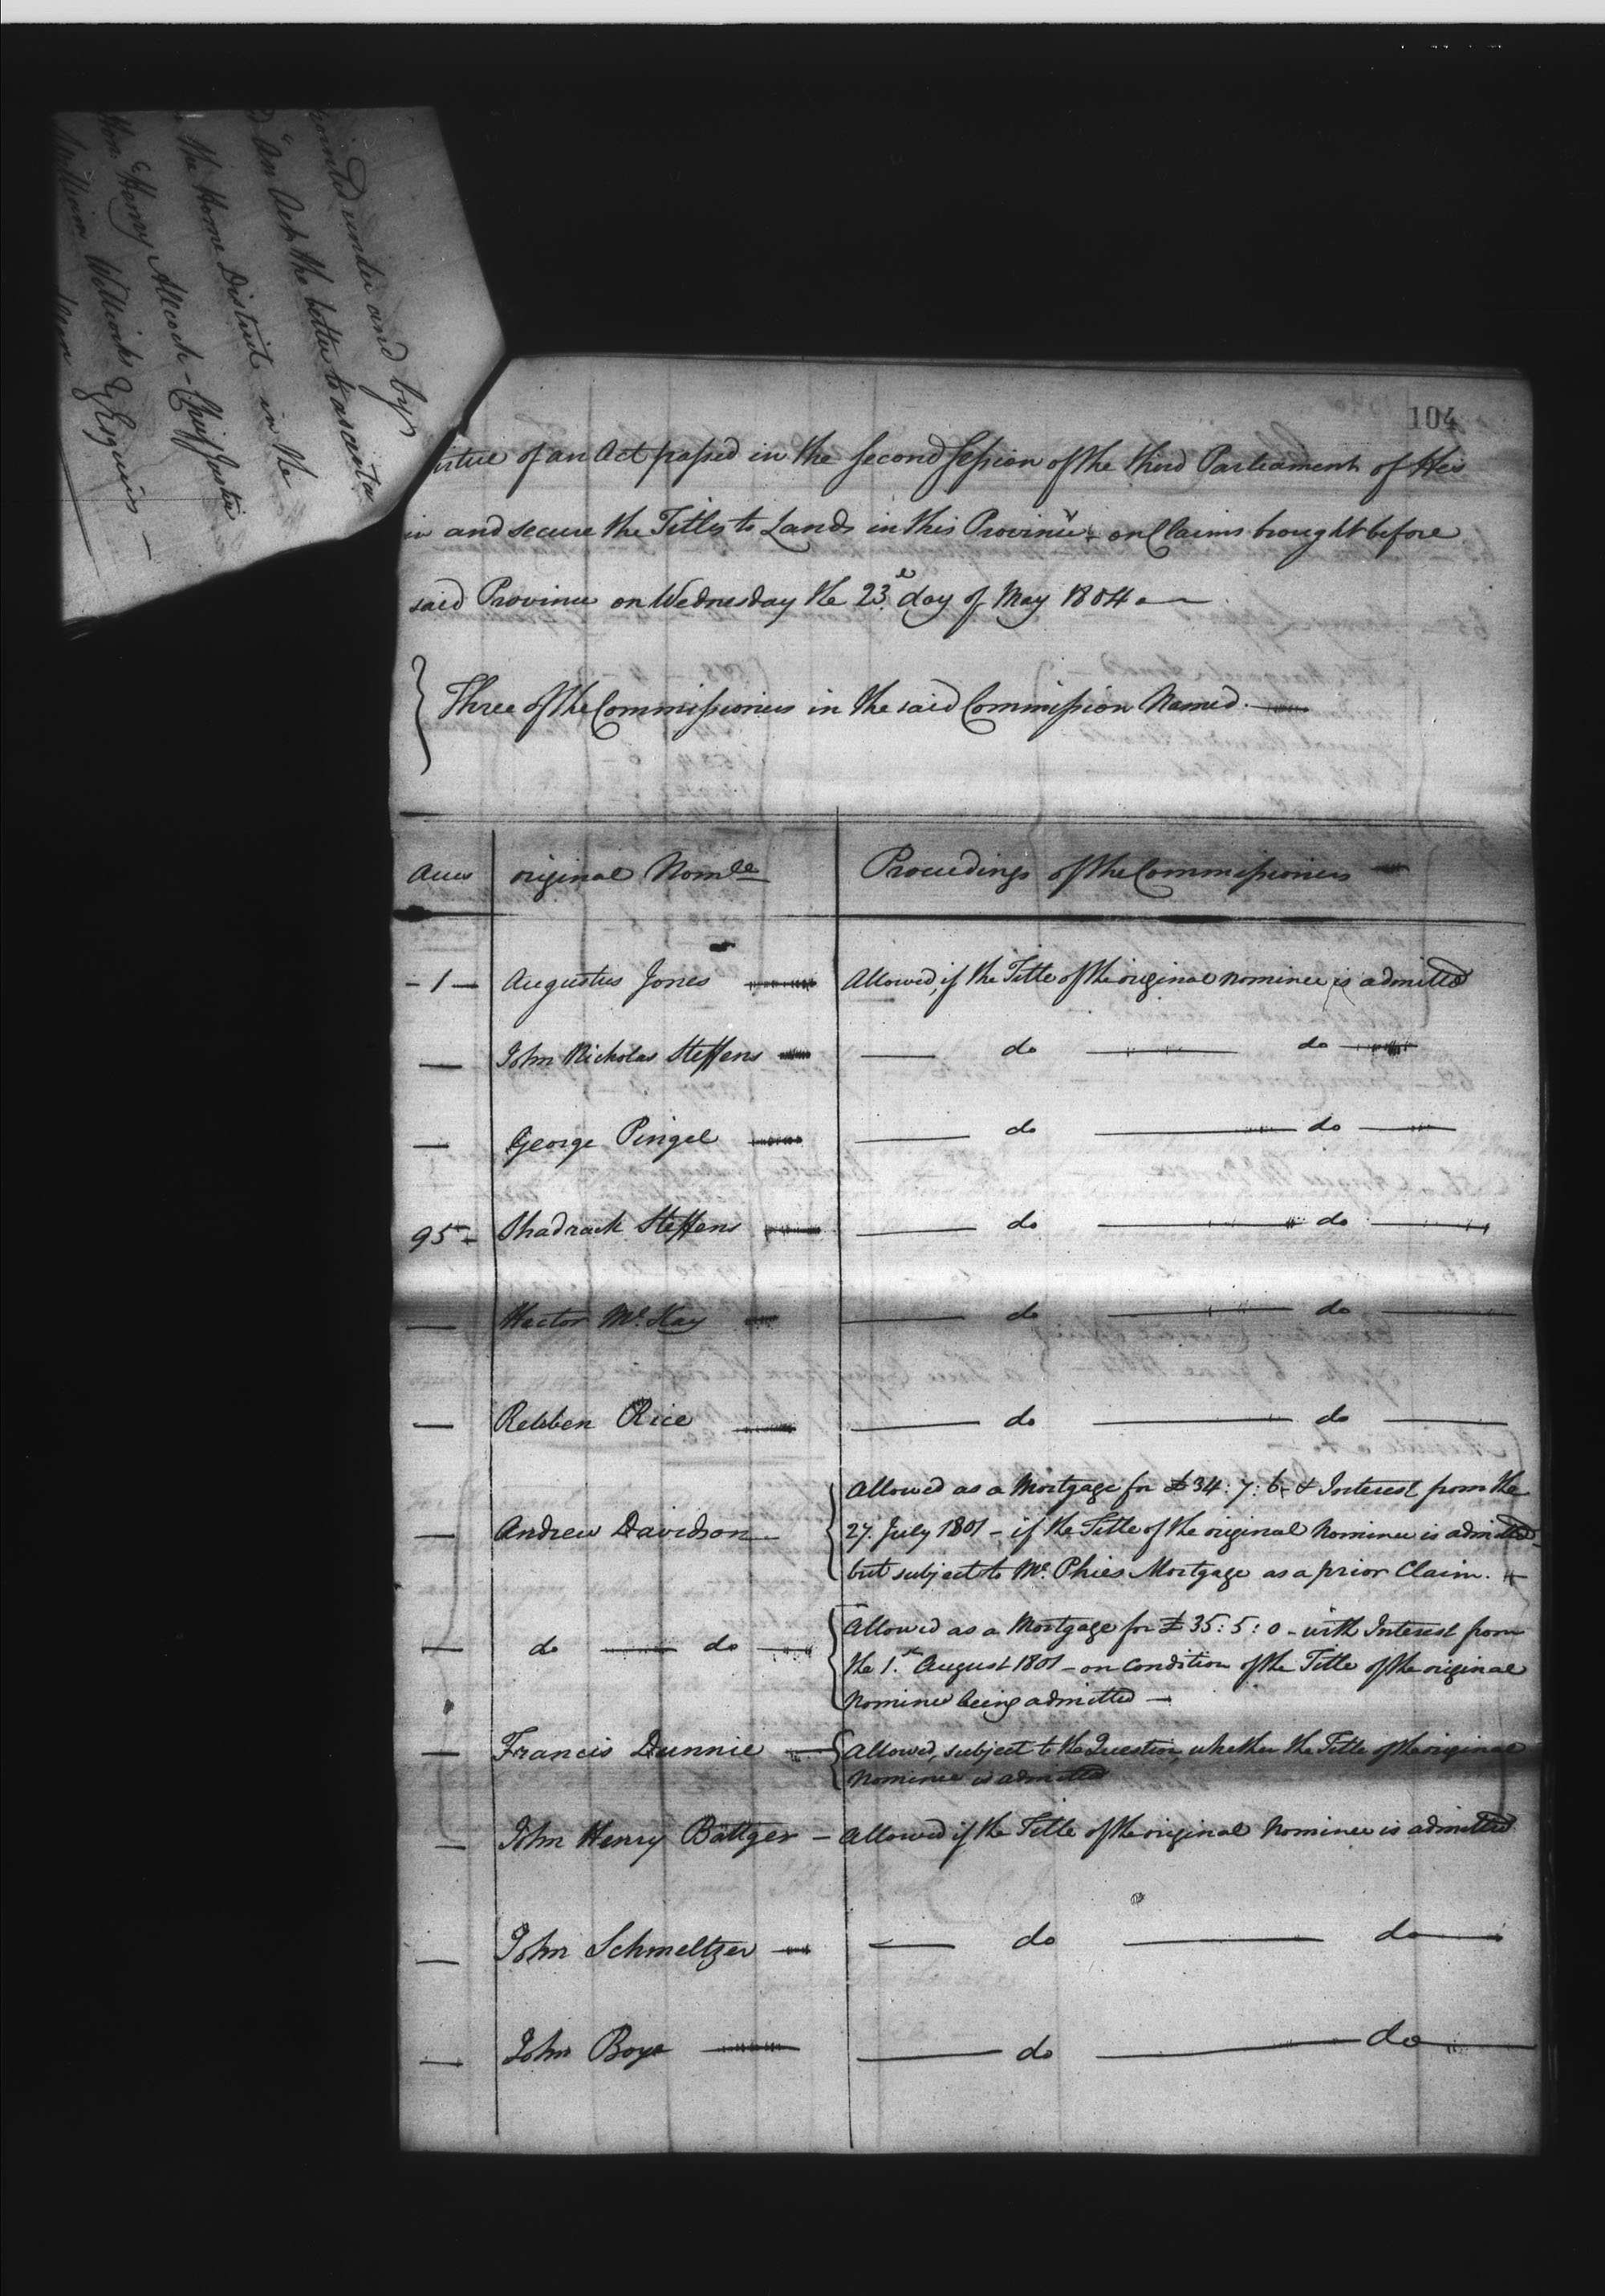 ointed under and by
"An Act the better to ascerta
the Home District in the
Hon. Henry Allcock - Chief Justice
William Willcocks Esquires -
104
irtue of an Act passed in the Second Session of the third Parliament of His
in and secure the Titles to Lands in this Province", on Claims brought before
said Province on Wednesday the 23.d day of May 1804
} Three of the Commissioners in the said Commission Named.
Acres original Nomee Proceedings of the Commissioners
- 1 - Augustus Jones Allowed, if the Title of the original nominee is admitted
— John Nicholas Steffens — do — do —
— George Pingel — do — do —
95 - Shadrach Steffens — do — do —
— Hector Mc.Kay — do — do —
— Rebben Rice — do — do —
— Andrew Davidson - { Allowed as a Mortgage for £34: 7: 6, & Interest from the
27. July 1801 - if the Title of the original Nominee is admitted -
but subject to Mc. Phies Mortgage as a prior Claim.
— do — do — { Allowed as a Mortgage for £35: 5: 0 - with Interest from
the 1.st August 1801 - on condition of the Title of the original
Nominee being admitted —
— Francis Dunnie — { Allowed, subject to the Question, whether the Title of the original
Nominee is admitted
— John Henry Battger - Allowed if the Title of the original Nominee is admitted
— John Schmeltzer — do — do —
— John Boye — do — do —